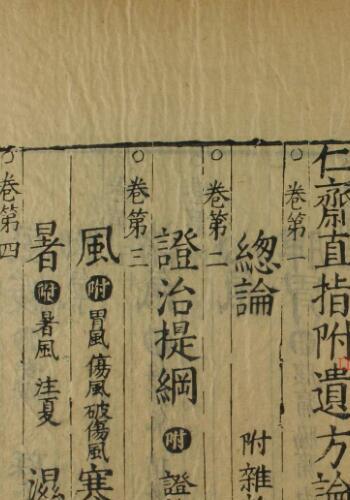 仁齋直指附遺方論
○卷第一
總論 附雜
○卷第二
證治提綱 附 證
○卷第三
風 附 胃風 傷風 破傷風 寒
暑 附 暑風 注夏 濕
○卷第四